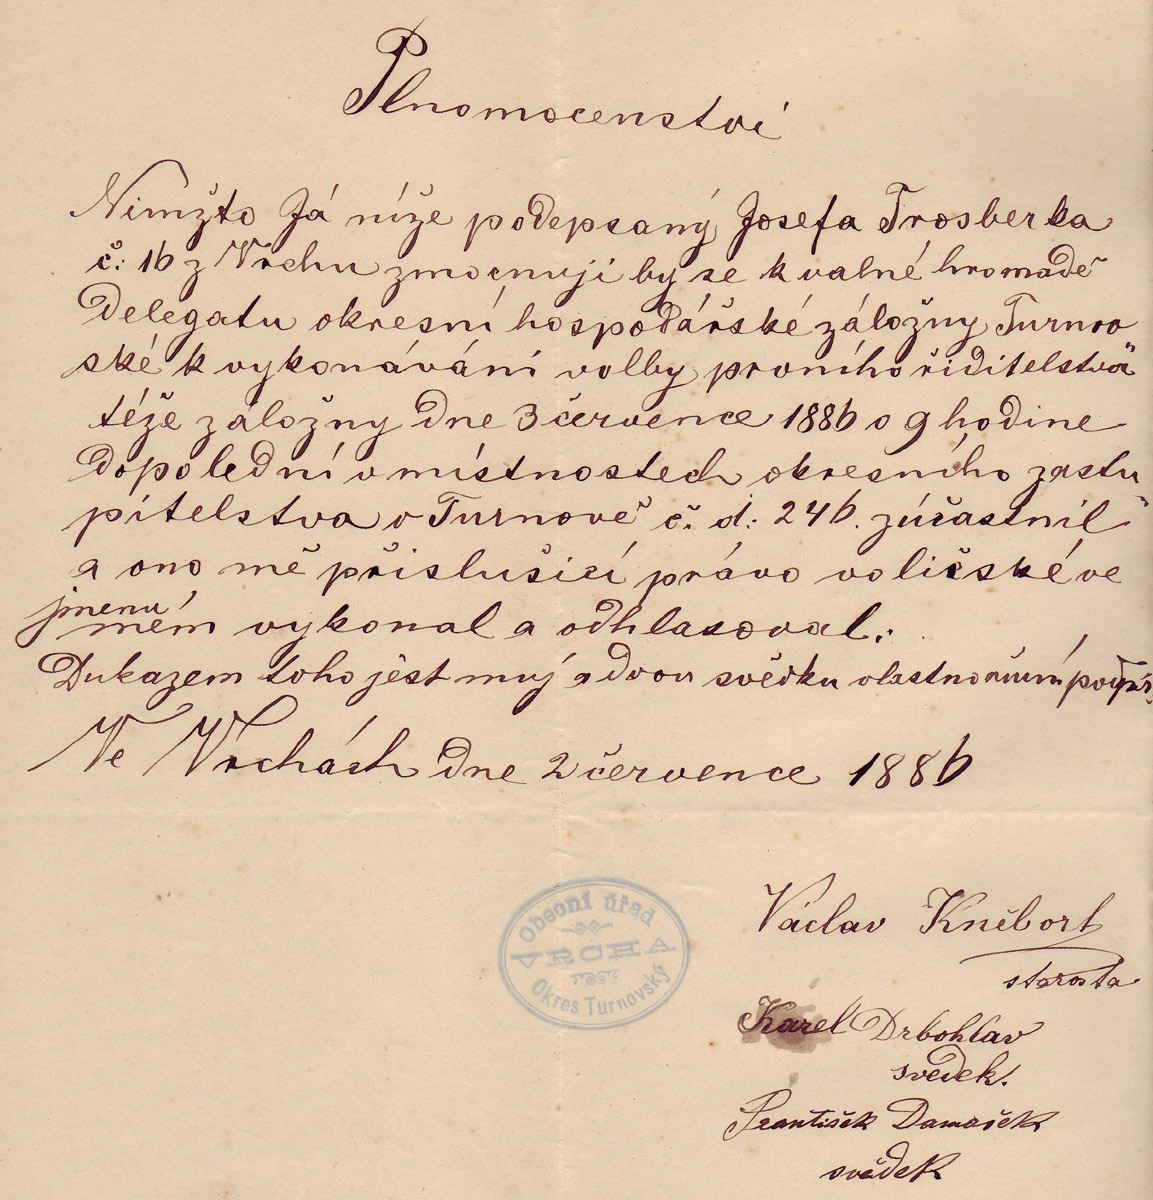 Plnomocenství
Nimžto Já níže podepsaný Josefa Trosberka
č: 16 z Vrchu zmocnuji by se k valné hromadě
delegatu okresní hospodářské záložny Turnov
ské k vykonávání volby prvního řiditelstva
téže záložny dne 3 července 1886 o 9 hodine
dopolední v místnostech okresního zastu
pitelstva v Turnově č. d: 246. zúčastnil
a ono mě příslušící právo voličské ve
jmenu
mém vykonal a odhlasoval.
Dukazem toho jest muj a dvou svědku vlastnoruční podpis.
Ve Vrchách dne 2 července 1886
Obecní úřad
VRCHA
Okres Turnovský
Václav Kněbort
starosta
Karel Drbohlav
svedek.
František Damašek
svědek